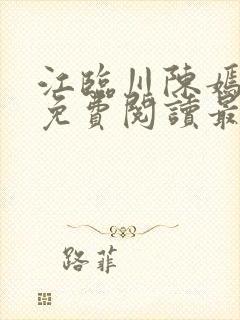 江臨川陳嫣
免費閱讀最
路菲